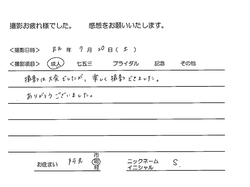 撮影お疲れ様でした。 感想をお願いいたします。
<撮影日時> 年 9月20日(土)
<撮影項目> 成人 七五三 ブライダル 記念 その他
撮影は大変でしたが、楽しく撮影できました。
ありがとうございました。
お住まい 市 町 村 ニックネーム イニシャル S.